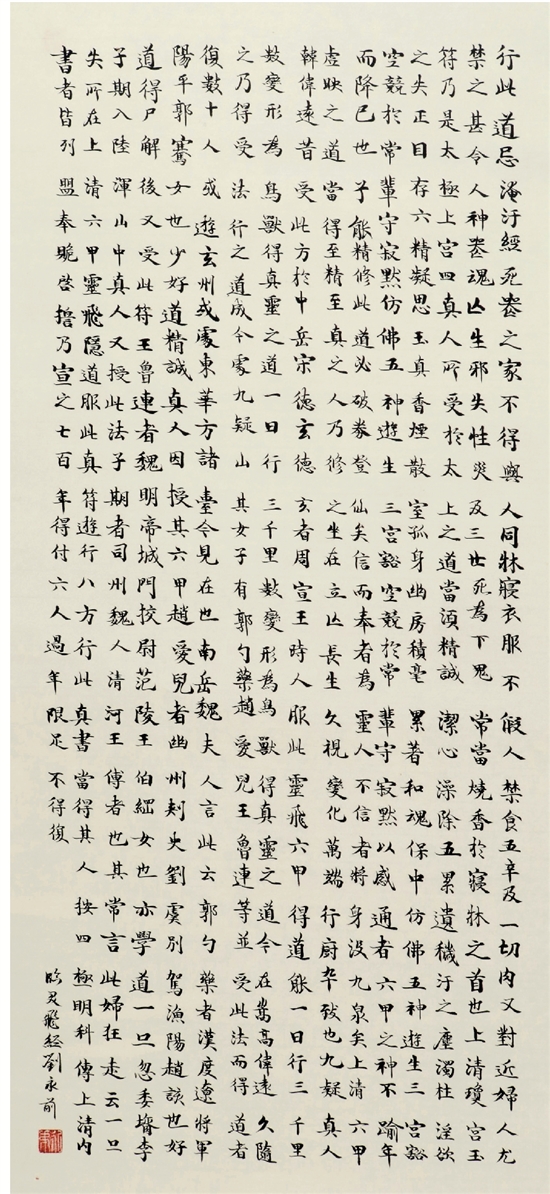 行此道忌淹汙經死喪之家不得與人同牀寢衣服不假人禁食五辛及一切肉又對近婦人尤
禁之甚令人神喪魂亡生邪失性災及三世死為下鬼常當燒香於寢牀之首也上清瓊宮玉
符乃是太極上宮四真人所受於太上之道當須精誠潔心澡除五累遺穢汙之塵濁杜淫欲
之失正目存六精凝思玉真香煙散室孤身幽房積毫累著和魂保中仿佛五神遊生三宮豁
空競於常輩守寂默仿佛五神遊生三宮豁空競於常輩守寂默以感通者六甲之神不踰年
而降已也子能精修此道必破券登仙矣信而奉者為靈人不信者將身沒九泉矣上清六甲
虛映之道當得至精至真之人乃修之坐在立亡長生久視變化萬端行廚卒致也九疑真人
韓偉遠昔受此方於中岳宋德玄德玄者周宣王時人服此靈飛六甲得道能一日行三千里
數變形為鳥獸得真靈之道一日行三千里數變形為鳥獸得真靈之道今在嵩高偉遠久隨
之乃得受法行之道成今處九疑山其女子有郭勺藥趙愛兒王魯連等並受此法而得道者
復數十人或遊玄州或處東華方諸臺今見在也南岳魏夫人言此云郭勺藥者漢度遼將軍
陽平郭騫女也少好道精誠真人因授其六甲趙愛兒者幽州刺史劉虞別駕漁陽趙該也好
道得尸解後又受此符王魯連者魏明帝城門校尉范陵王伯綱女也亦學道一旦忽委婿李
子期入陸渾山中真人又授此法子期者司州魏人清河王傳者也其常言此婦狂走云一旦
失所在上清六甲靈飛隱道服此真符遊行八方行此真書當得其人按四極明科傳上清內
書者皆列盟奉貺啟誓乃宣之七百年得付六人過年限足不得復
臨灵飛經劉永前